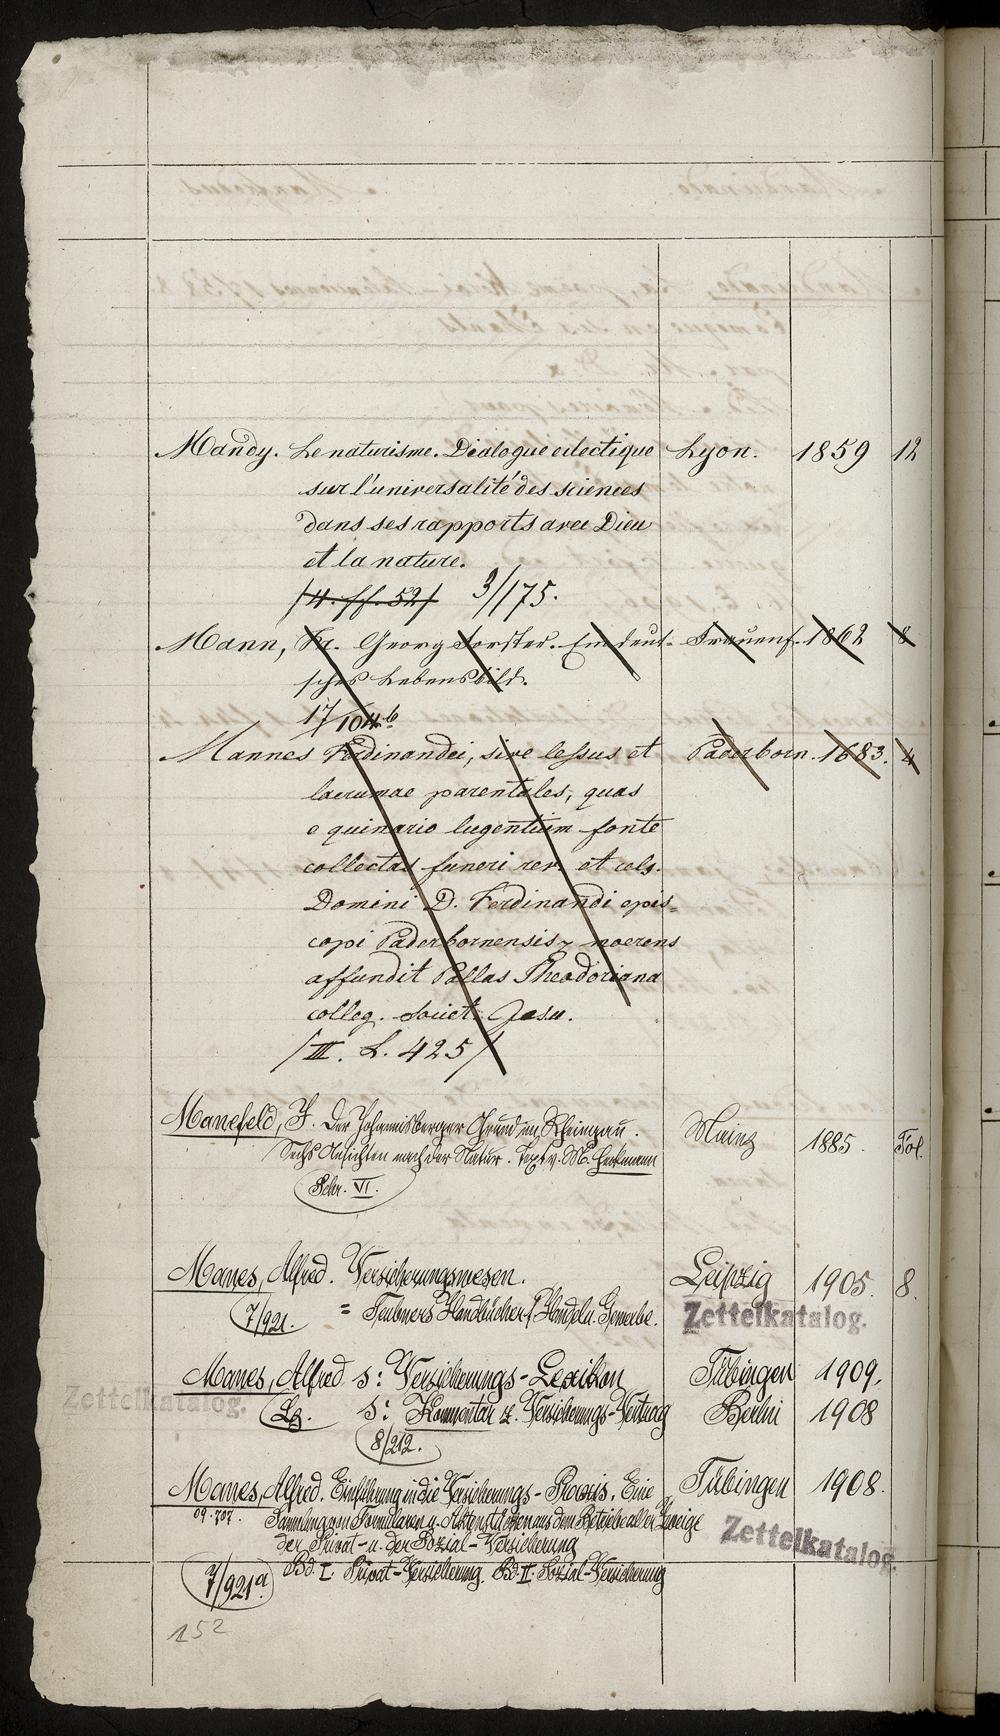 Mandy. Le naturisme. Dialogue eclectique Lyon. 1859 12
sur l'universalité des sciences
dans ses rapports avec Dieu
et la nature.
/4. ff. 52/ 3/175.
Mann, Fr. Georg Forster. Ein deut- Frauenf. 1862 8
sches Lebensbild.
17/104b
Mannes Ferdinandei, sive lessus et Paderborn. 1683. 4
lacrumae parentales, quas
e quinario lugentium fonte
collectas funeri rev. et cels.
Domini D. Ferdinandi epis-
copi Paderbornensis moerens
affundit Pallas Theodoriana
colleg. Societ. Jesu.
/III. L. 425/
Manefeld, F. Der Johannisberger Grund im Rheingau. Mainz 1885. Fol.
Sechs Ansichten nach der Natur. Text v. M. Heckmann
Schr. VI.
Manes, Alfred. Versicherungswesen. Leipzig 1905. 8.
7/921. = Teubners Handbücher f. Handel u. Gewerbe. Zettelkatalog.
Manes, Alfred s: Versicherungs-Lexikon Tübingen 1909.
Zettelkatalog. Lz. s: Kommentar z. Versicherungs-Vertrag Berlin 1908
8/212.
Manes, Alfred. Einführung in die Versicherungs-Praxis. Eine Tübingen 1908.
09.707. Sammlung von Formularen u. Aktenstücken aus dem Betriebe aller Zweige
der Privat- u. der Sozial-Versicherung Zettelkatalog.
7/921a. Bd. I. Privat-Versicherung. Bd. II. Sozial-Versicherung
152